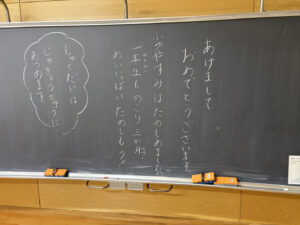 あけまして
おめでとうございます。
ふゆやすみはたのしめましたか
一年生ものこり三か月
めいいっぱいたのしもう
しゅくだいは
じゅぎょうちゅうに
あつめます。